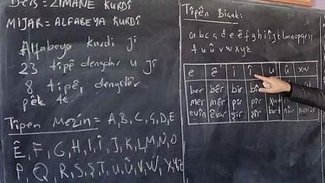 Ders: ZIMANÊ KURDÎ
MIJAR: ALFABEYA KURDÎ
Alfabeya kurdi ji
23 tipê dengdar u ji
8 tipê dengdêr
pêk tê
Tipên Mezin = A, B, C, Ç, D, E
Ê, F, G, H, I, Î, J, K, L, M, N, O
P, Q, R, S, Ş, T, U, Û, V, W, X, Y, Z
Tipên Bicûk:
a b c ç d e ê f g h i î j k l m n o p q r s ş
t u û v w x y z
e ê i î u û xw
ber bêr bir
mer mêr pir pîr
evin êvar